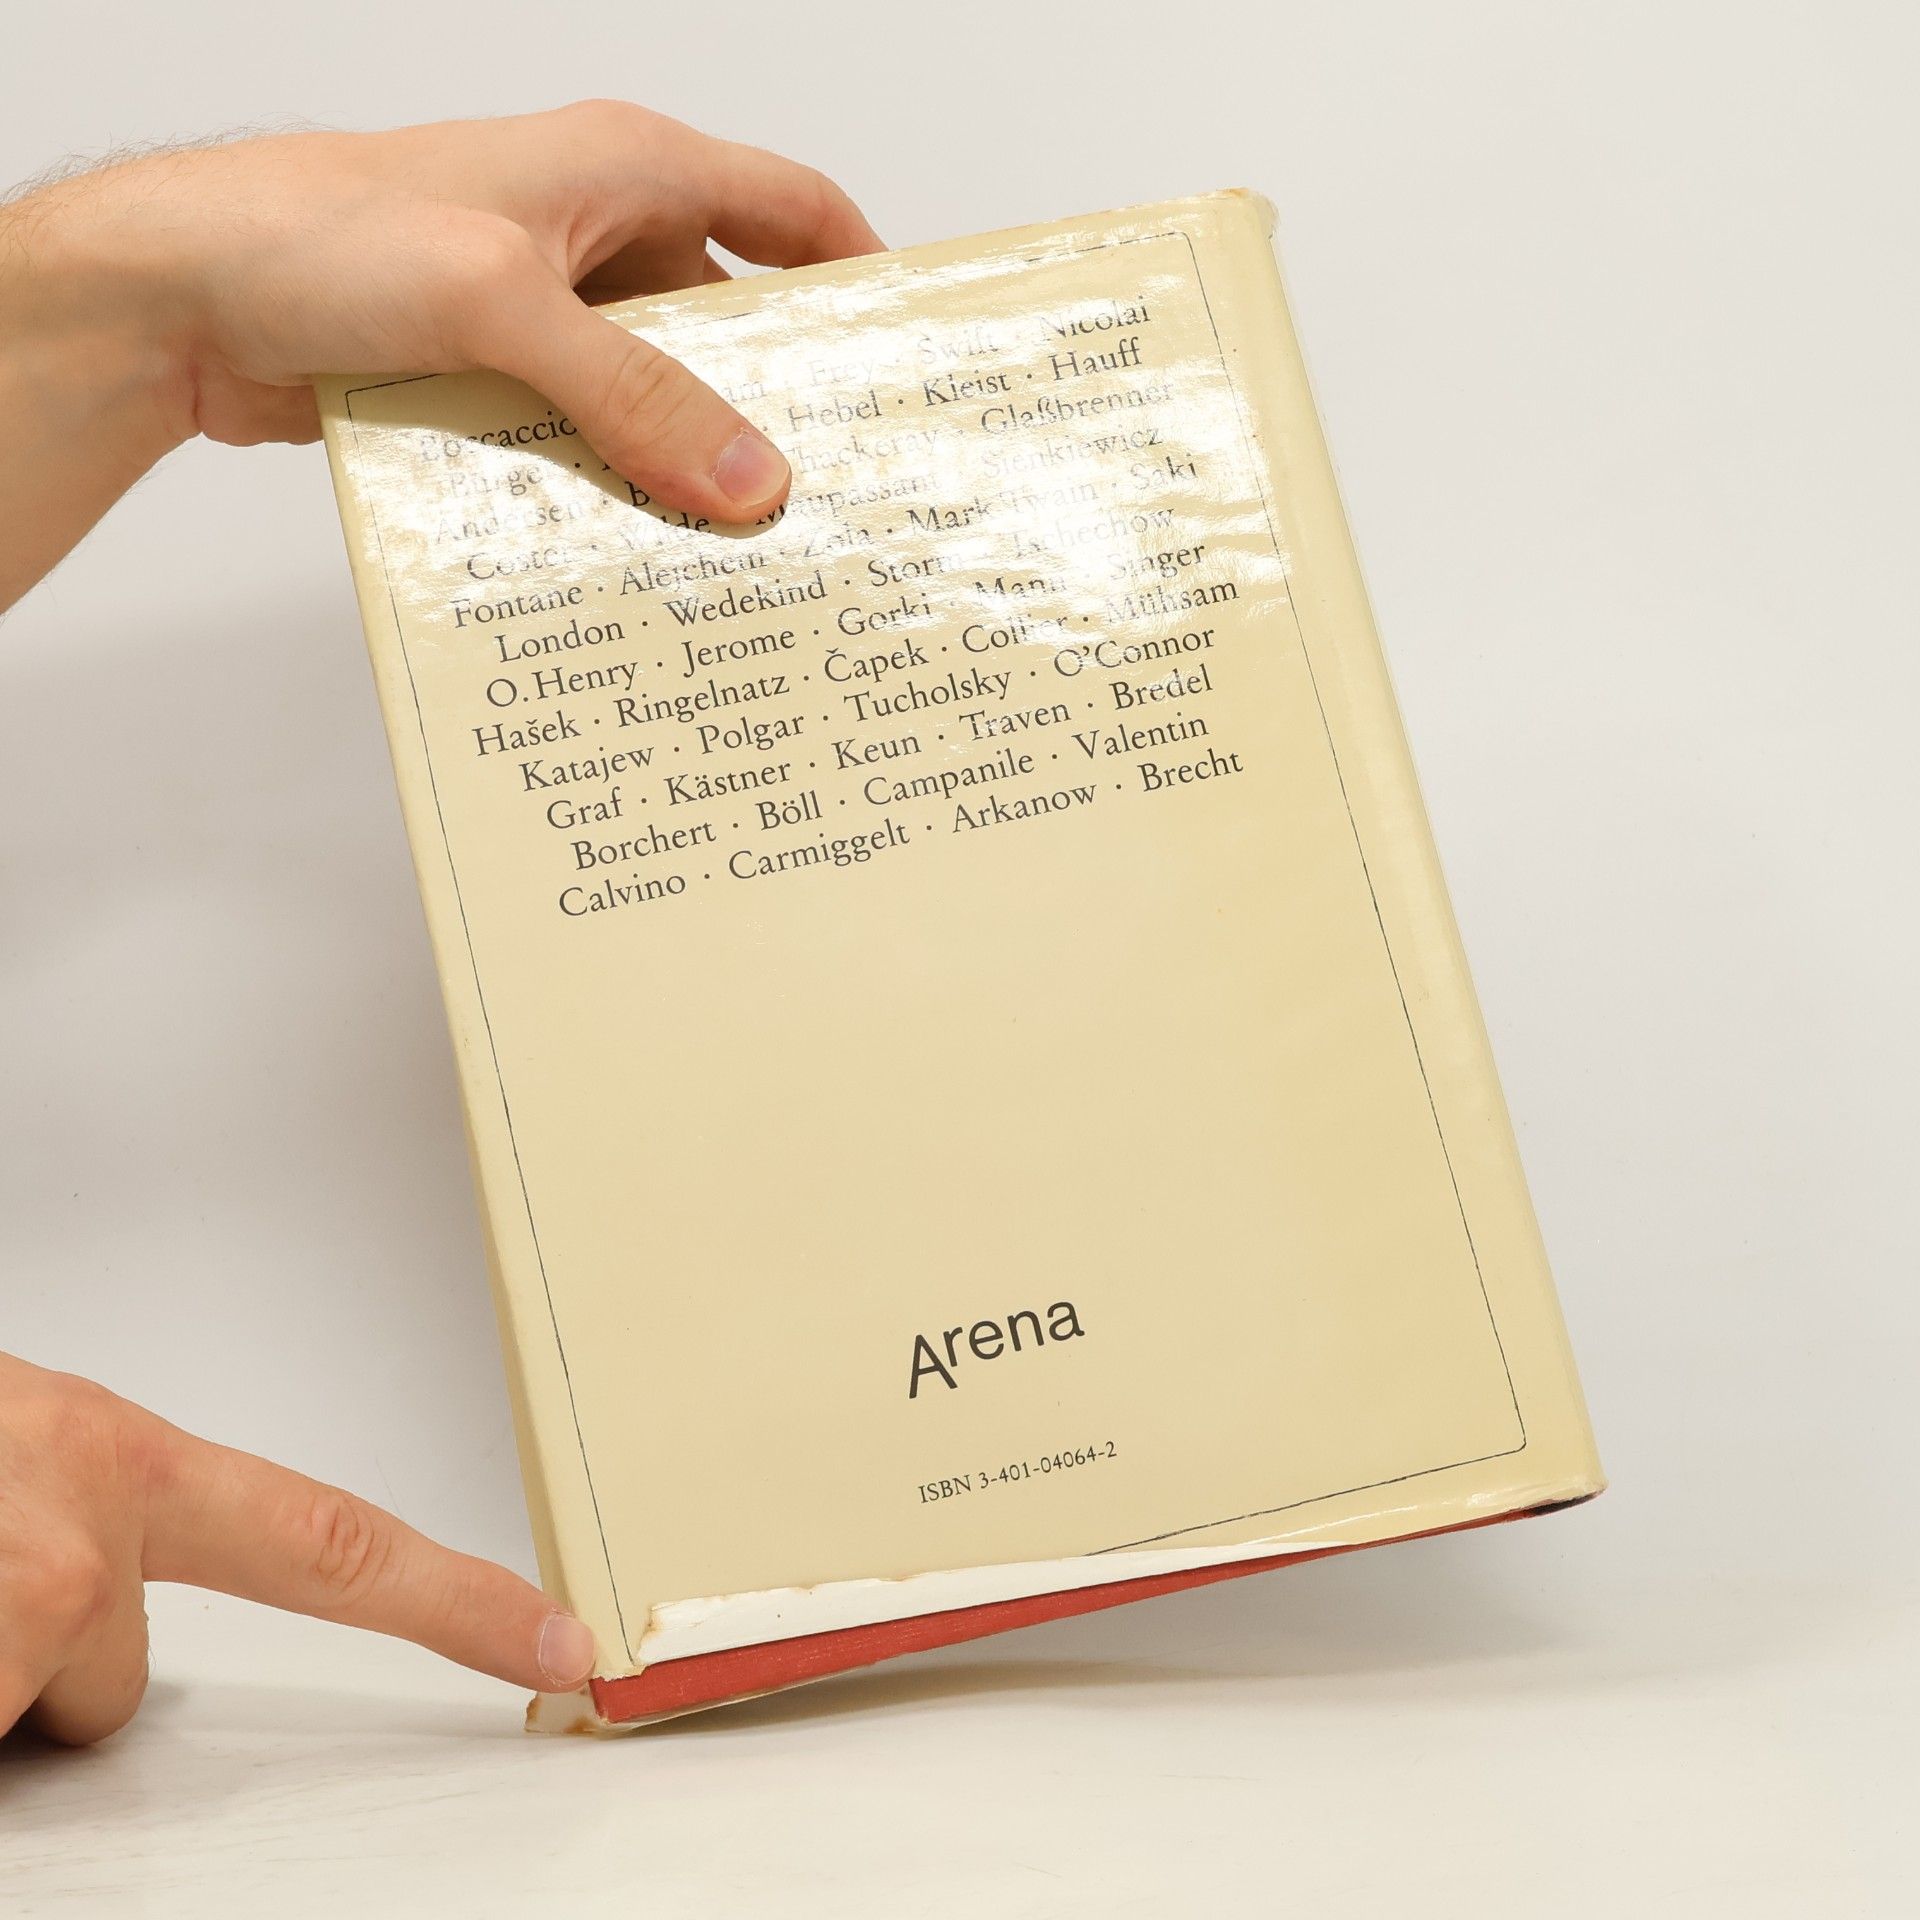 Boccaccio · Frey · Swift · Nicolai
Bürger · Hebel · Kleist · Hauff
Andersen · Thackeray · Glaßbrenner
Coster · Wilde · Maupassant · Sienkiewicz
Fontane · Alejchem · Zola · Mark Twain · Saki
London · Wedekind · Storm · Tschechow
O. Henry · Jerome · Gorki · Mann · Singer
Hašek · Ringelnatz · Čapek · Collier · Mühsam
Katajew · Polgar · Tucholsky · O’Connor
Graf · Kästner · Keun · Traven · Bredel
Borchert · Böll · Campanile · Valentin
Calvino · Carmiggelt · Arkanow · Brecht
Arena
ISBN 3-401-04064-2